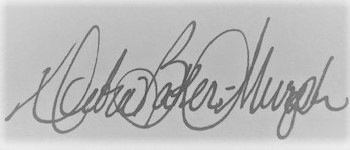 Debra Baker-Murph